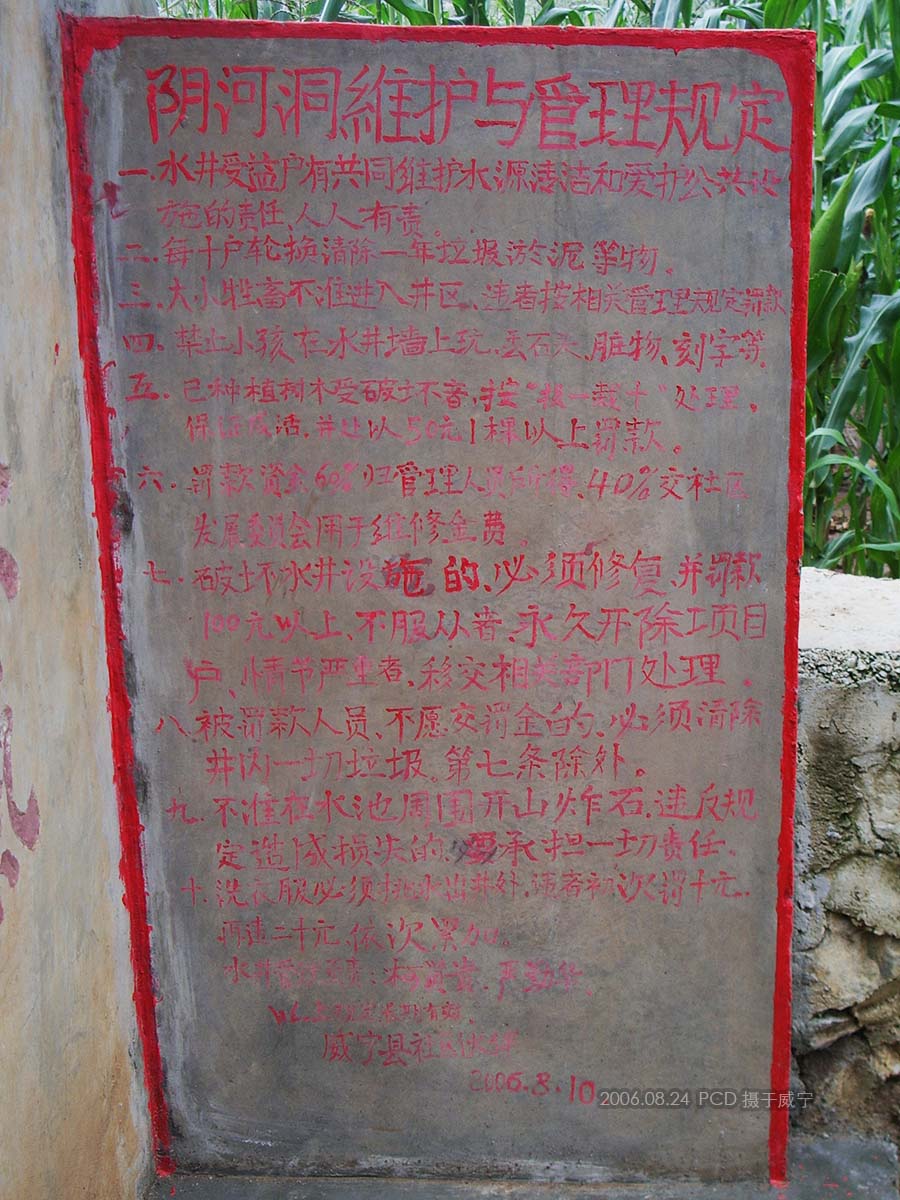 阴河洞維护与管理规定
一.水井受益户有共同维护水源清洁和爱护公共设
施的责任,人人有责。
二.每十户轮换清除一年垃圾淤泥等物。
三.大小牲畜不准进入井区,违者按相关管理规定罚款
四.禁止小孩在水井墙上玩,丢石头,脏物,刻字等.
五.已种植树木受破坏者,按"损一栽十"处理,
保证成活,并处以50元1棵以上罚款。
六.罚款资金60%归管理人员所得,40%交社区
发展委员会用于维修金费。
七.破坏水井设施的,必须修复,并罚款
100元以上,不服从者,永久开除项目
户,情节严重者,移交相关部门处理.
八.被罚款人员,不愿交罚金的,必须清除
井内一切垃圾。第七条除外。
九.不准在水池周围开山炸石,违反规
定造成损失的,要承担一切责任.
十.洗衣服必须挑水出井外,违者初次罚十元.
再违二十元,依次累加。
水井管
以上规定长期有效.
威宁县社区
2006.8.10
2006.08.24 PCD 摄于威宁